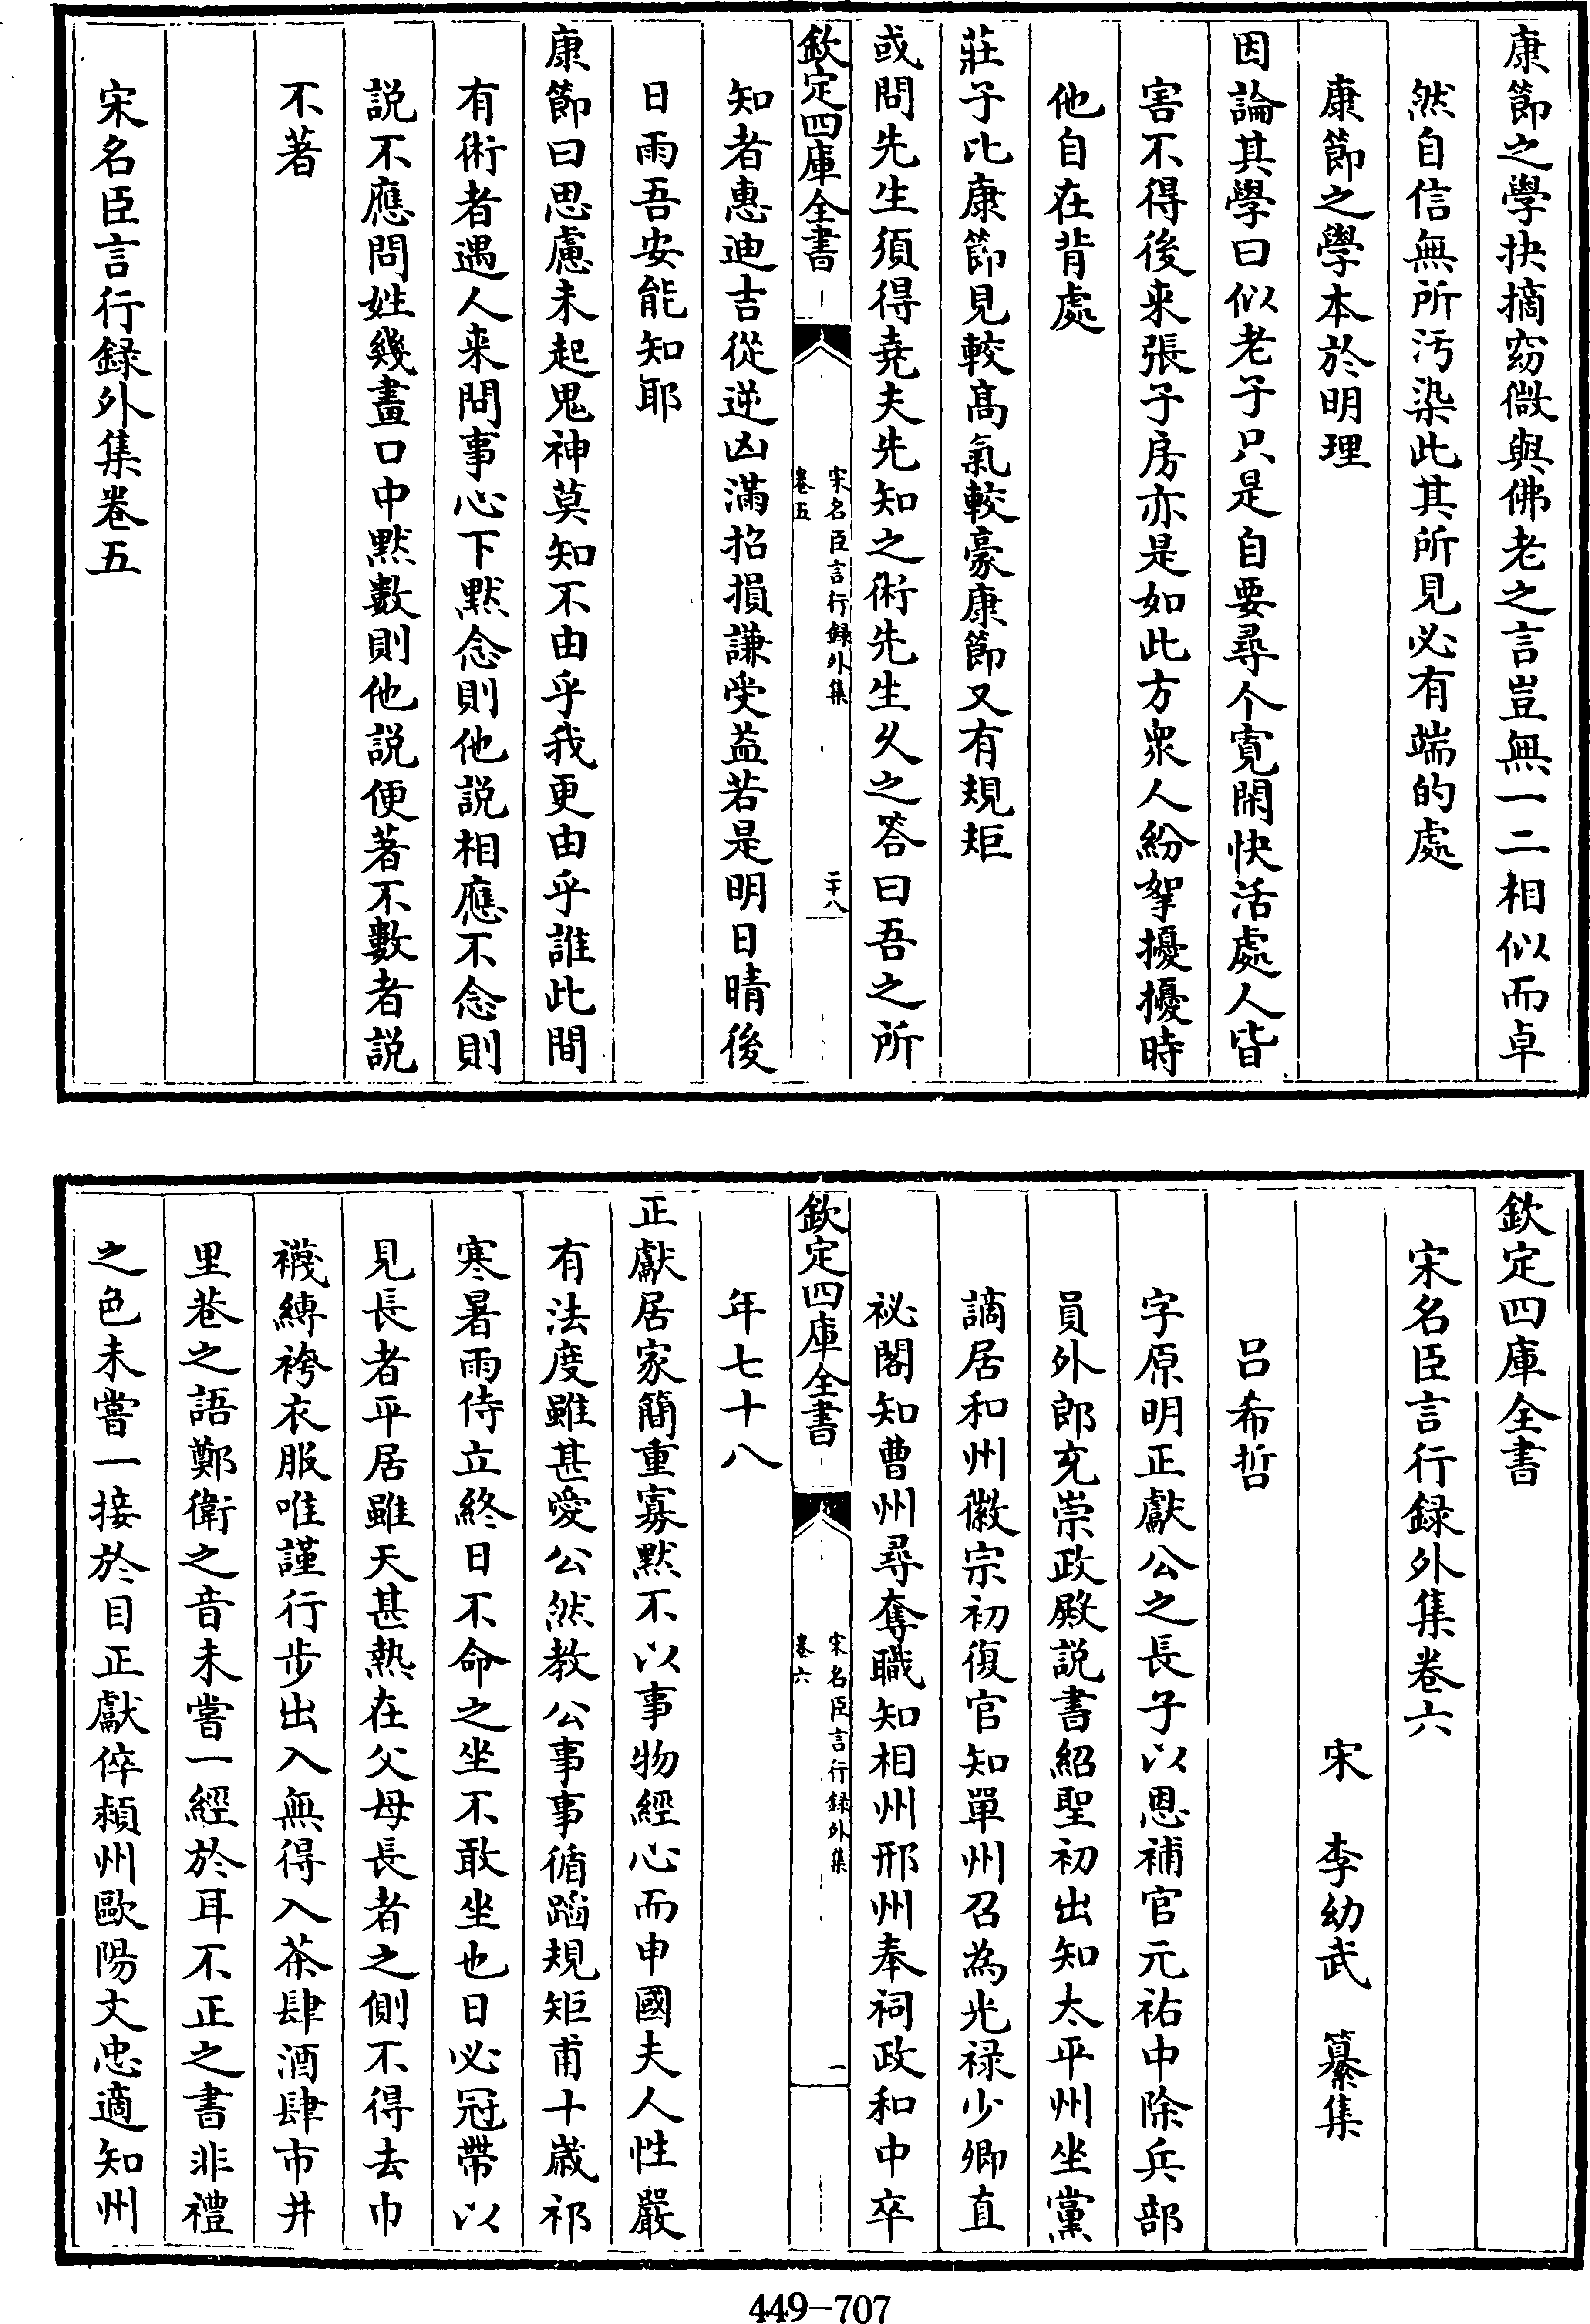 康節之學抉摘窈微與佛老之言豈無一二相似而卓
然自信無所汚染此其所見必有端的處
康節之學本於明理
因論其學曰似老子只是自要尋个寛閒快活處人皆
害不得後来張子房亦是如此方衆人紛拏擾擾時
他自在背處
莊子比康節見較髙氣較豪康節又有規矩
或問先生須得堯夫先知之術先生乆之答曰吾之所
欽定四庫全書
宋名臣言行録外集
卷五
二十八
知者惠迪吉從逆凶滿招損謙受益若是明日晴後
日雨吾安能知耶
康節曰思慮未起鬼神莫知不由乎我更由乎誰此間
有術者遇人来問事心下黙念則他説相應不念則
説不應問姓幾畫口中黙數則他説便著不數者説
不著
宋名臣言行録外集卷五
欽定四庫全書
宋名臣言行録外集卷六
宋 李幼武 纂集
吕希哲
字原明正獻公之長子以恩補官元祐中除兵部
員外郎充崇政殿説書紹聖初出知太平州坐黨
謫居和州徽宗初復官知單州召為光禄少卿直
祕閣知曹州尋奪職知相州邢州奉祠政和中卒
欽定四庫全書
宋名臣言行録外集
卷六
一
年七十八
正獻居家簡重寡黙不以事物經心而申國夫人性嚴
有法度雖甚愛公然教公事事循蹈規矩甫十歲祁
寒暑雨侍立終日不命之坐不敢坐也日必冠帶以
見長者平居雖天甚熱在父母長者之側不得去巾
襪縛袴衣服唯謹行步出入無得入茶肆酒肆市井
里巷之語鄭衛之音未嘗一經於耳不正之書非禮
之色未嘗一接於目正獻倅潁州歐陽文忠適知州
449-707